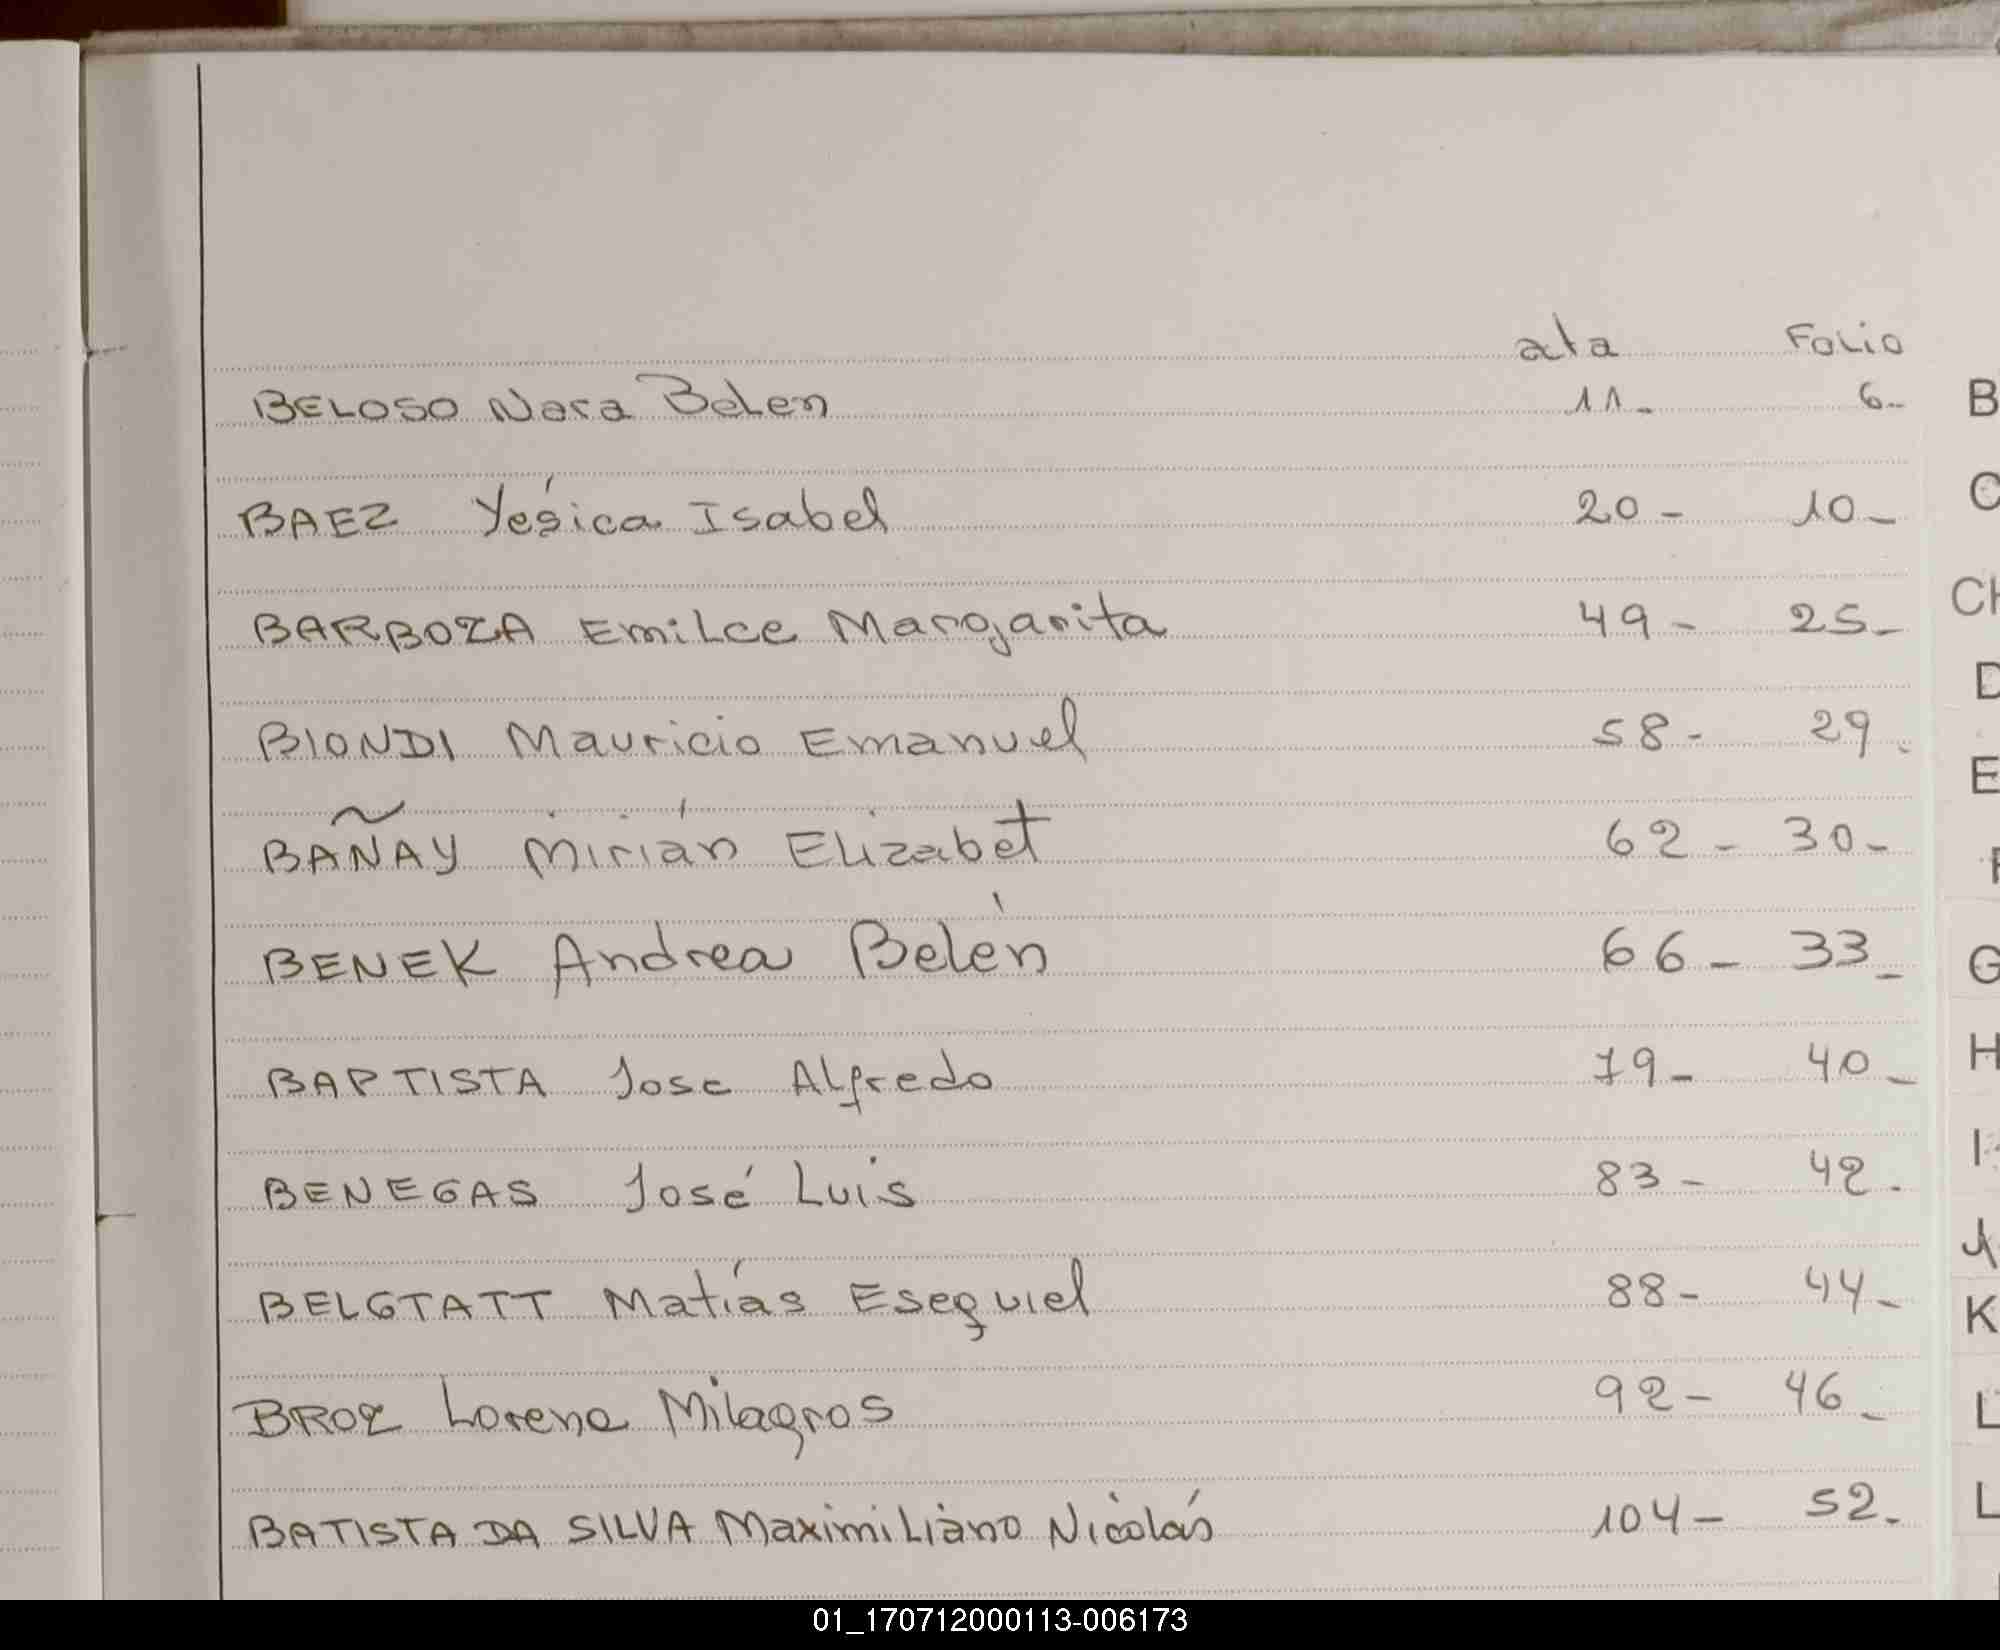 ata Folio
BELOSO Nara Belen 11- 6- B
BAEZ Yésica Isabel 20- 10- C
BARBOZA Emilce Margarita 49- 25- CH
BIONDI Mauricio Emanuel 58- 29. D
E
BAÑAY Mirián Elizabet 62- 30-
BENEK Andrea Belén 66- 33- G
BAPTISTA Jose Alfredo 79- 40- H
BENEGAS José Luis 83- 42. I
BELGTATT Matías Esequiel 88- 44- K
BROZ Lorena Milagros 92- 46- L
BATISTA DA SILVA Maximiliano Nicolás 104- 52- L
01_170712000113-006173